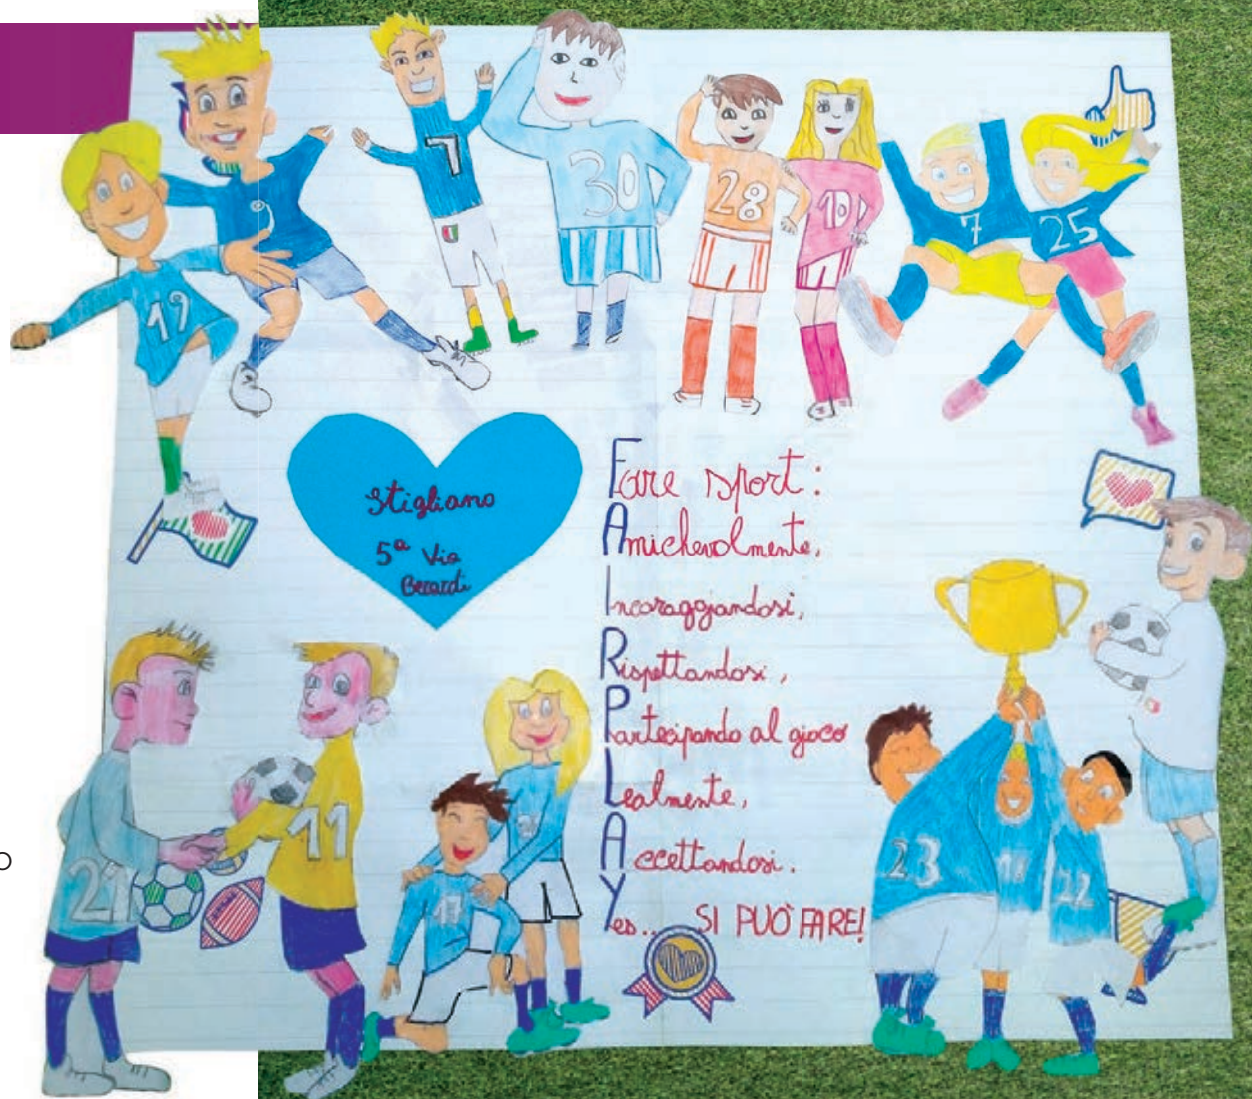 9
7
30
28
10
7
25
19
Stigliano
5ª Via
Berardi
Fare sport:
Amichevolmente,
Incoraggiandosi,
Rispettandosi,
Partecipando al gioco
Lealmente,
Accettandosi.
Yes... SI PUÒ FARE!
21
11
17
23
22
o